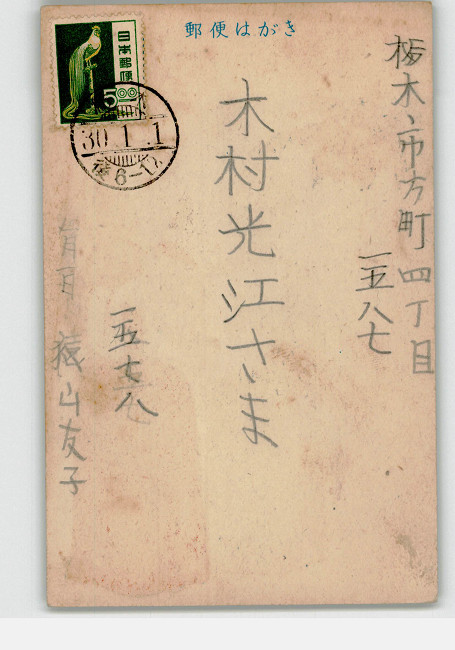 郵便はがき
日本郵便
5.00
30.1.1
后6-12
栃木市万町四丁目
一五八七
木村光江さま
一五七八
猿山友子